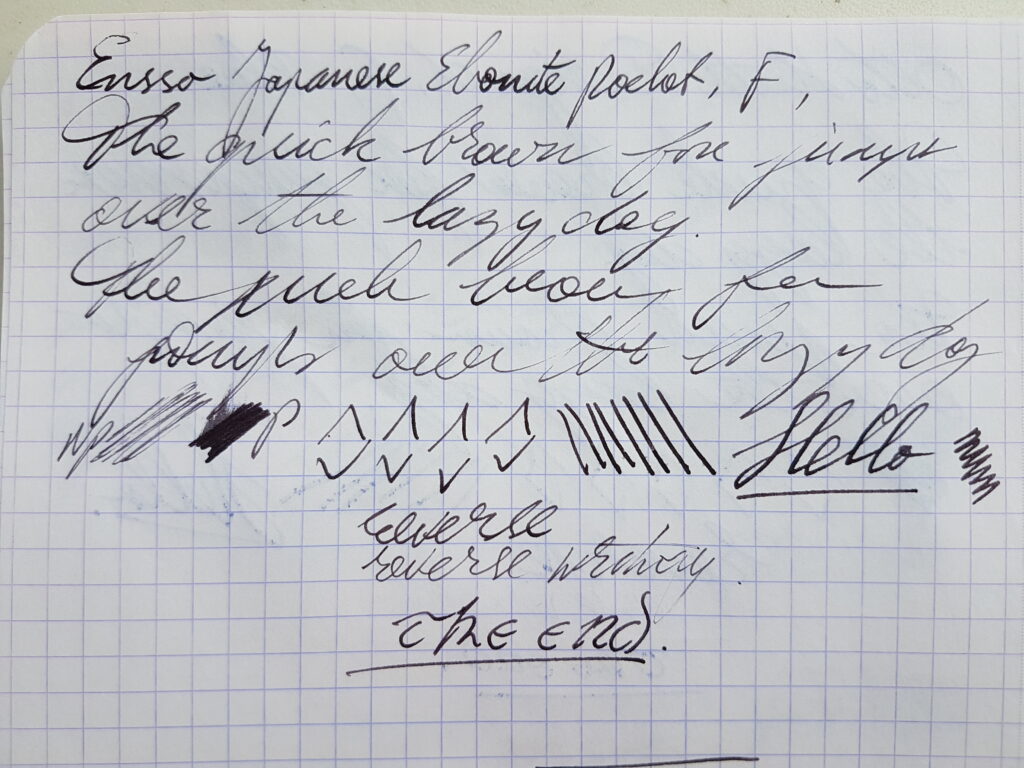 Ensso Japanese Ebonite Pocket, F,
The quick brown fox jumps
over the lazy dog.
The quick brown fox
jumps over the lazy dog
Hello
reverse
reverse writing.
The end.